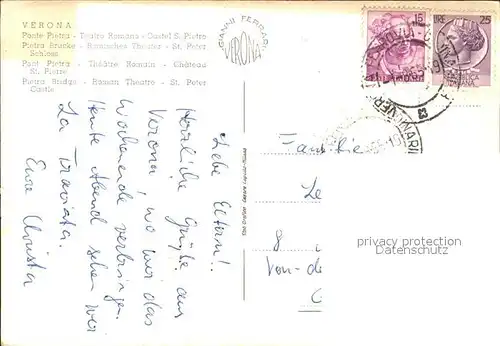 VERONA
Ponte Pietra - Teatro Romano - Castel S. Pietro
Pietra Brücke - Römisches Theater - St. Peter
Schloss
Pont Pietra - Théâtre Romain - Château
St. Pierre
Pietra Bridge - Roman Theatre - St. Peter
Castle
GIANNI FERRARI
VERONA
15
LIRE 25
Liebe Eltern!!
Herzliche Grüße aus
Verona, wo wir das
Wochenende verbringen.
Heute Abend sehen wir
La Traviata.
Eure Christa
Familie
Le
g
Von-d
privacy protection
watermark
Postcards24.com